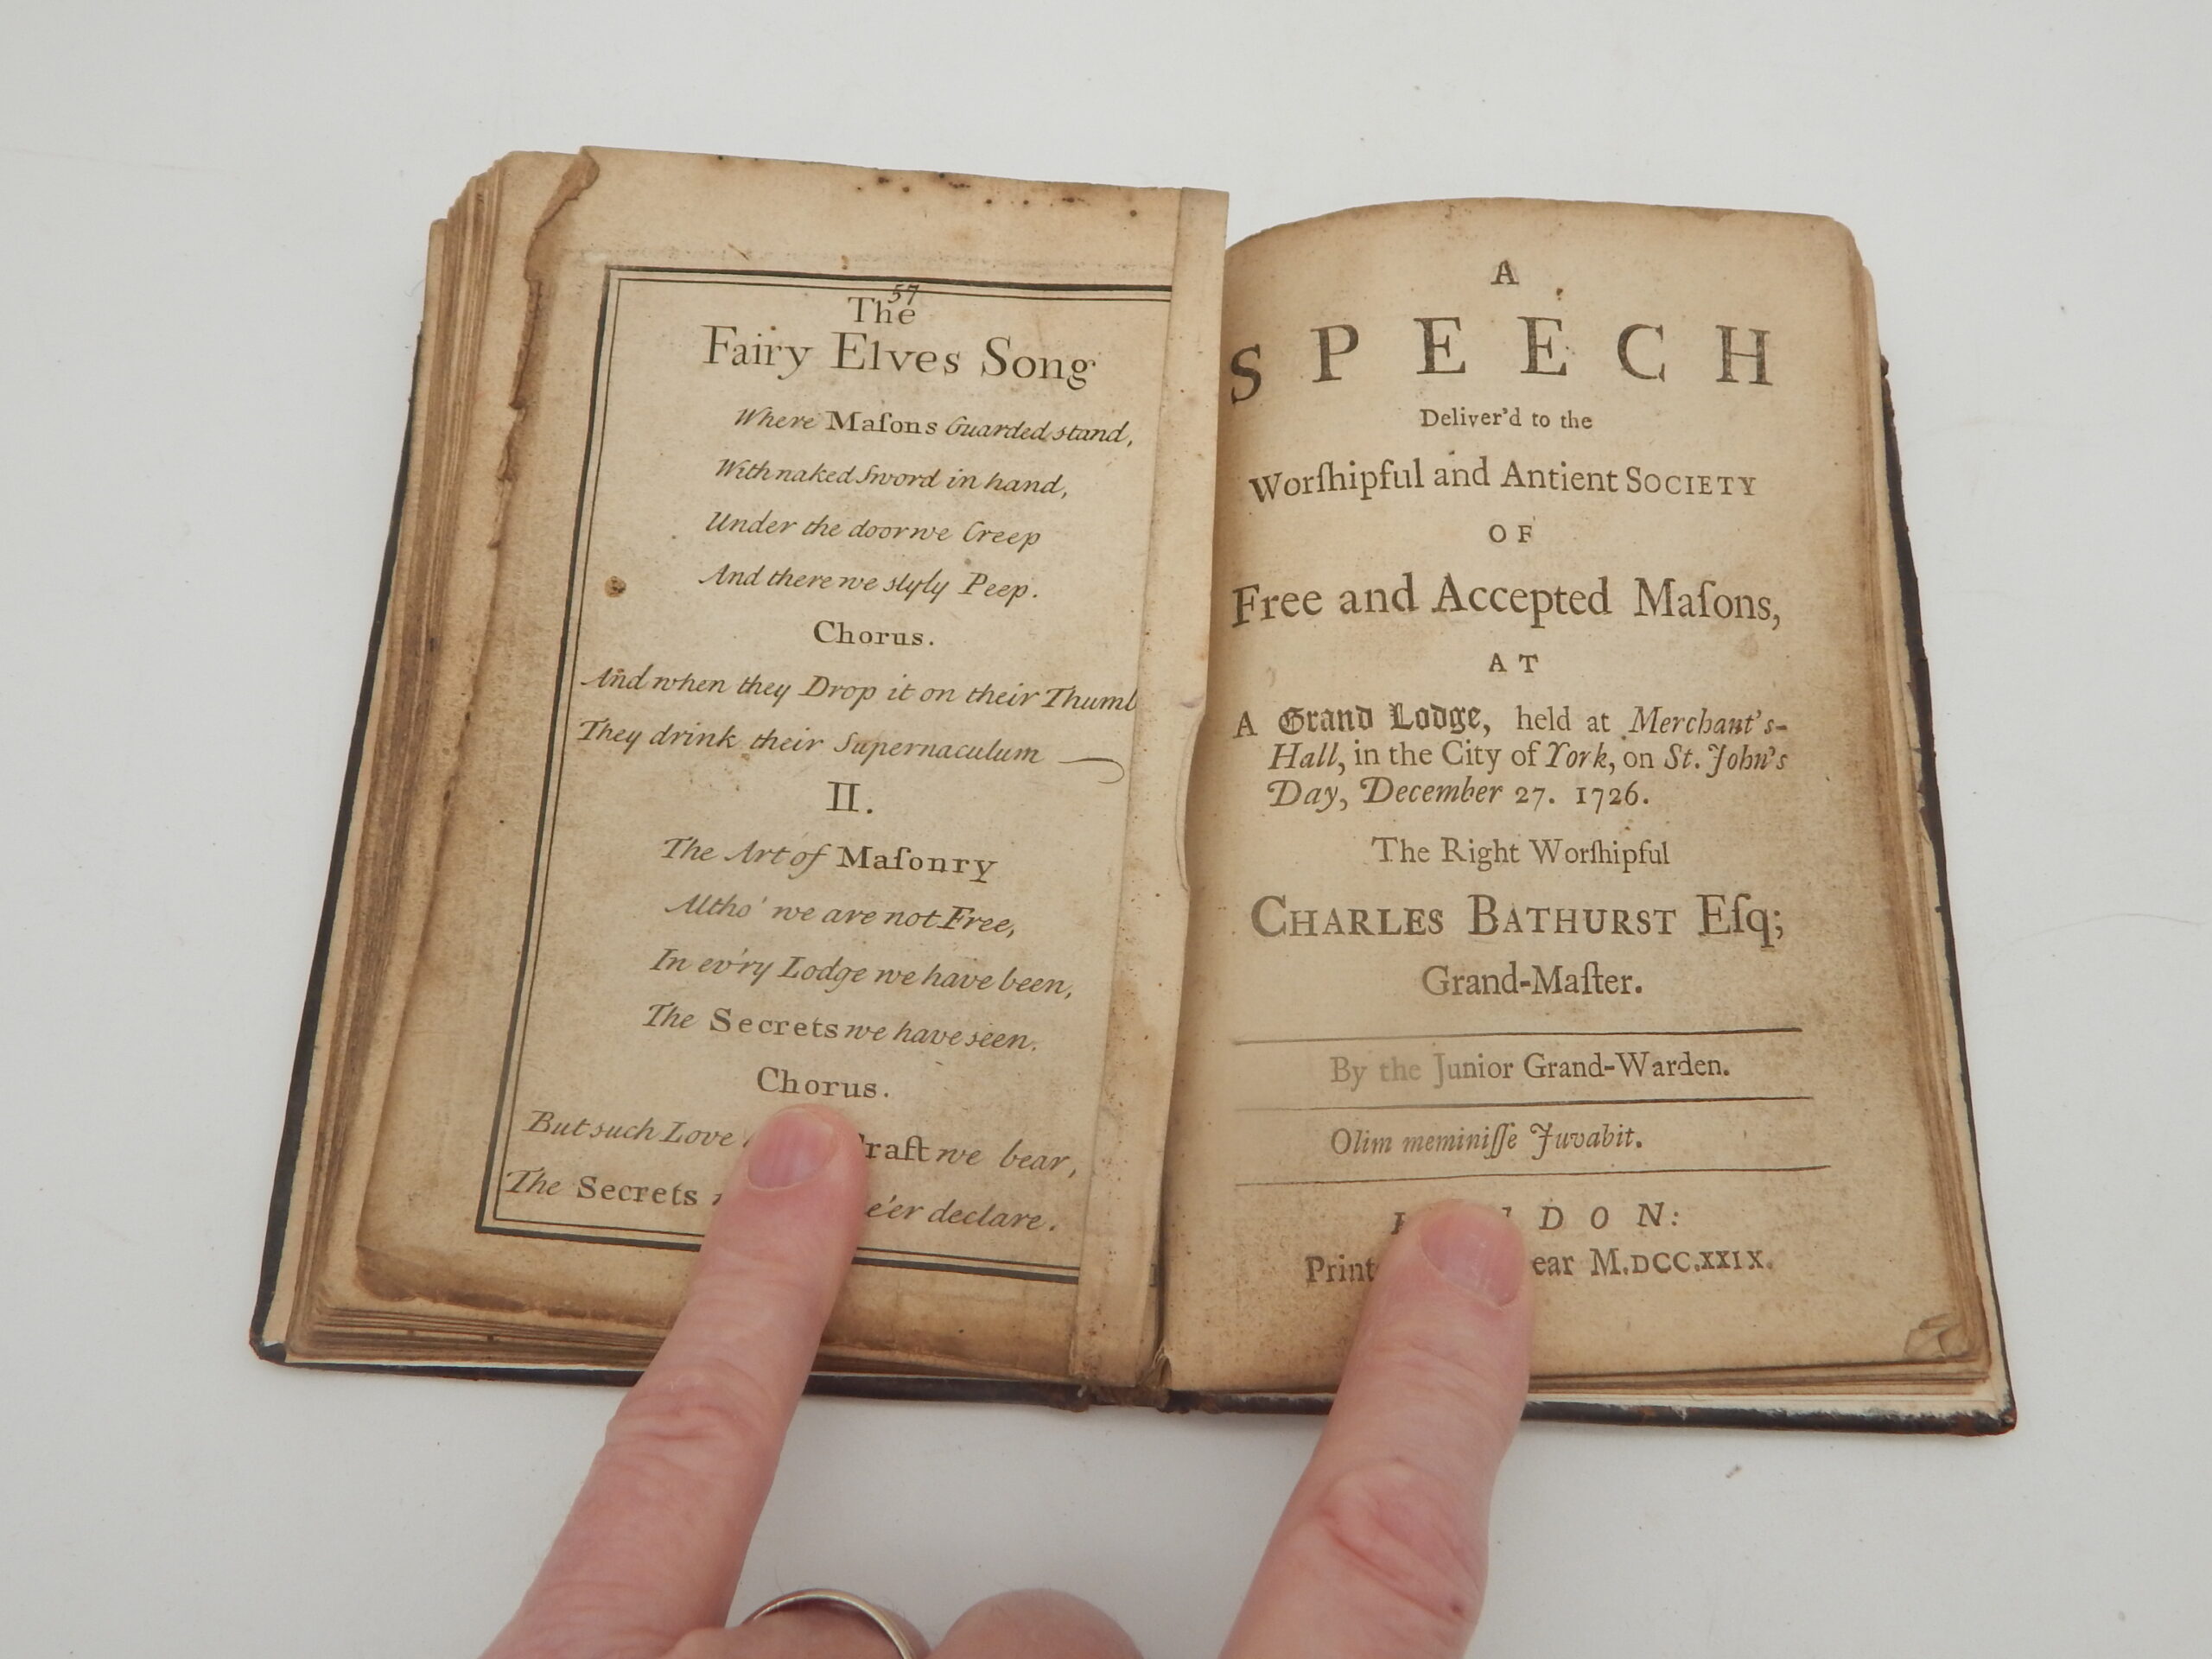 57
The
Fairy Elves Song
Where Maſons Guarded stand,
With naked Sword in hand,
Under the door we Creep
And there we slyly Peep.
Chorus.
And when they Drop it on their Thumb
They drink their Supernaculum
II.
The Art of Maſonry
Altho' we are not Free,
In ev'ry Lodge we have been,
The Secrets we have seen.
Chorus.
But such Love we bear,
The Secrets declare.
A
SPEECH
Deliver'd to the
Worſhipful and Antient SOCIETY
OF
Free and Accepted Maſons,
AT
A Grand Lodge, held at Merchant's-
Hall, in the City of York, on St. John's
Day, December 27. 1726.
The Right Worſhipful
CHARLES BATHURST Eſq;
Grand-Maſter.
By the Junior Grand-Warden.
Olim meminiſſe Juvabit.
LONDON:
M.DCC.XXIX.